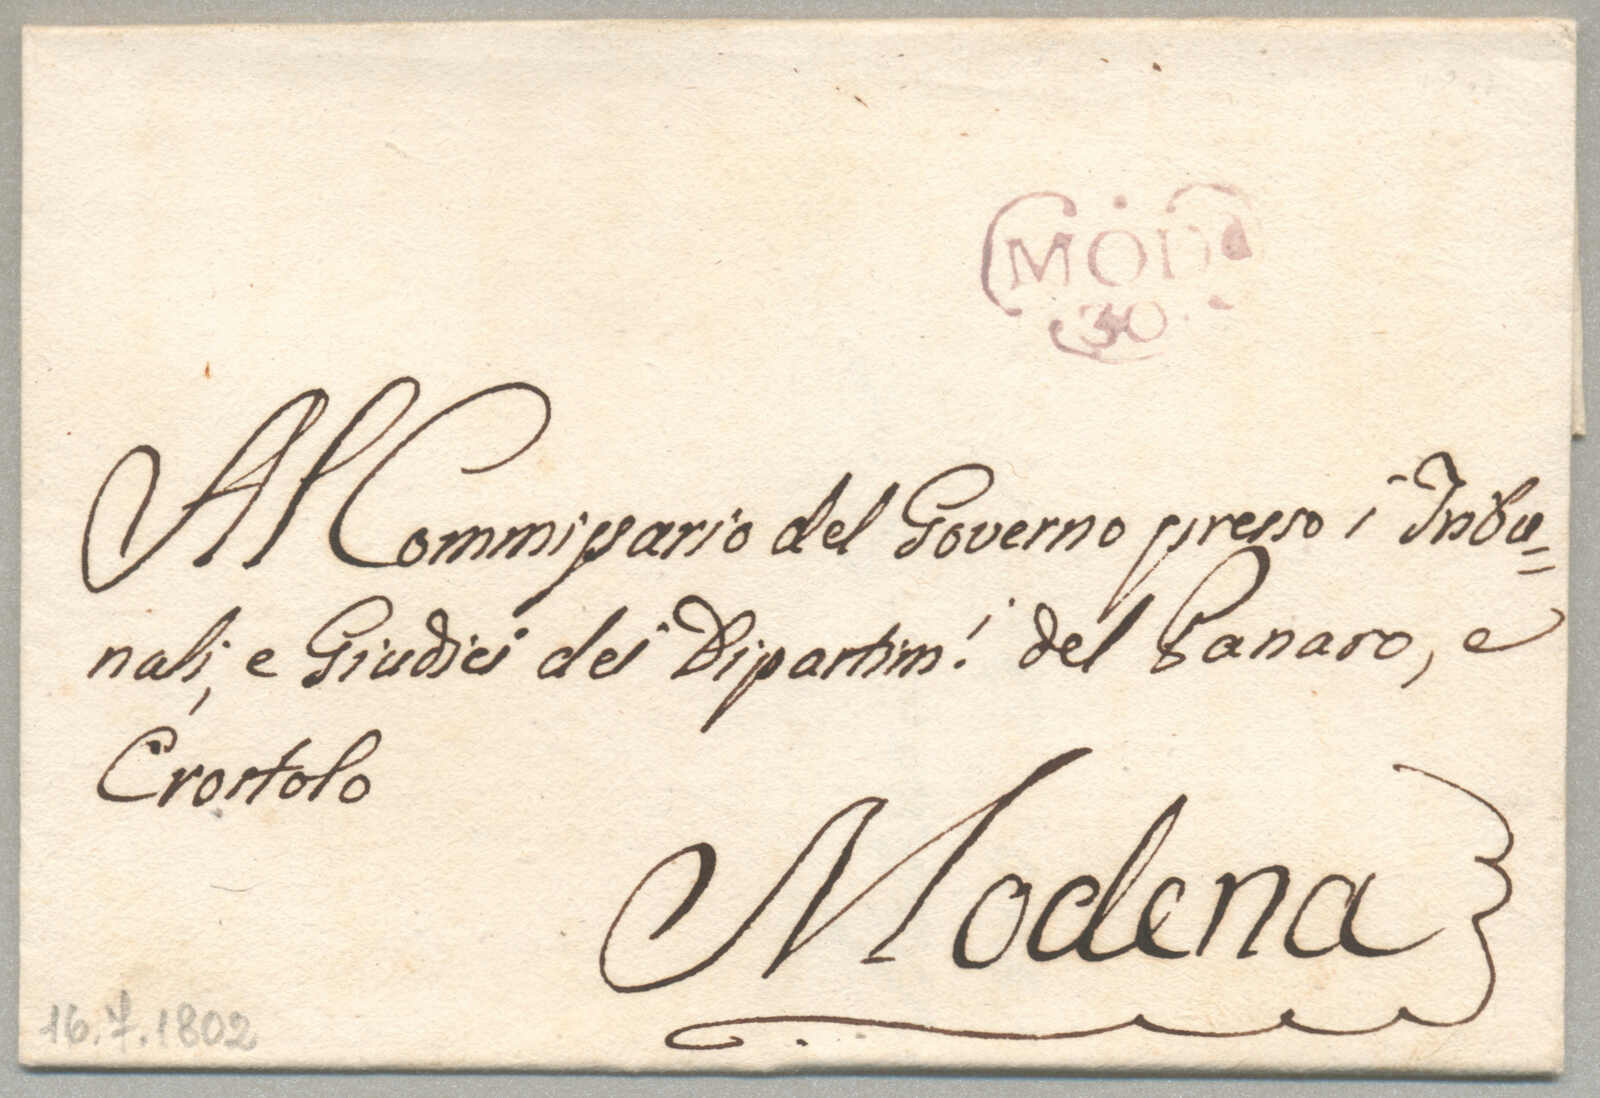 MODa
30
Al Commissario del Governo presso i Tribu=
nali, e Giudici dei Dipartim.i del Panaro, e
Crostolo
Modena
16.7.1802